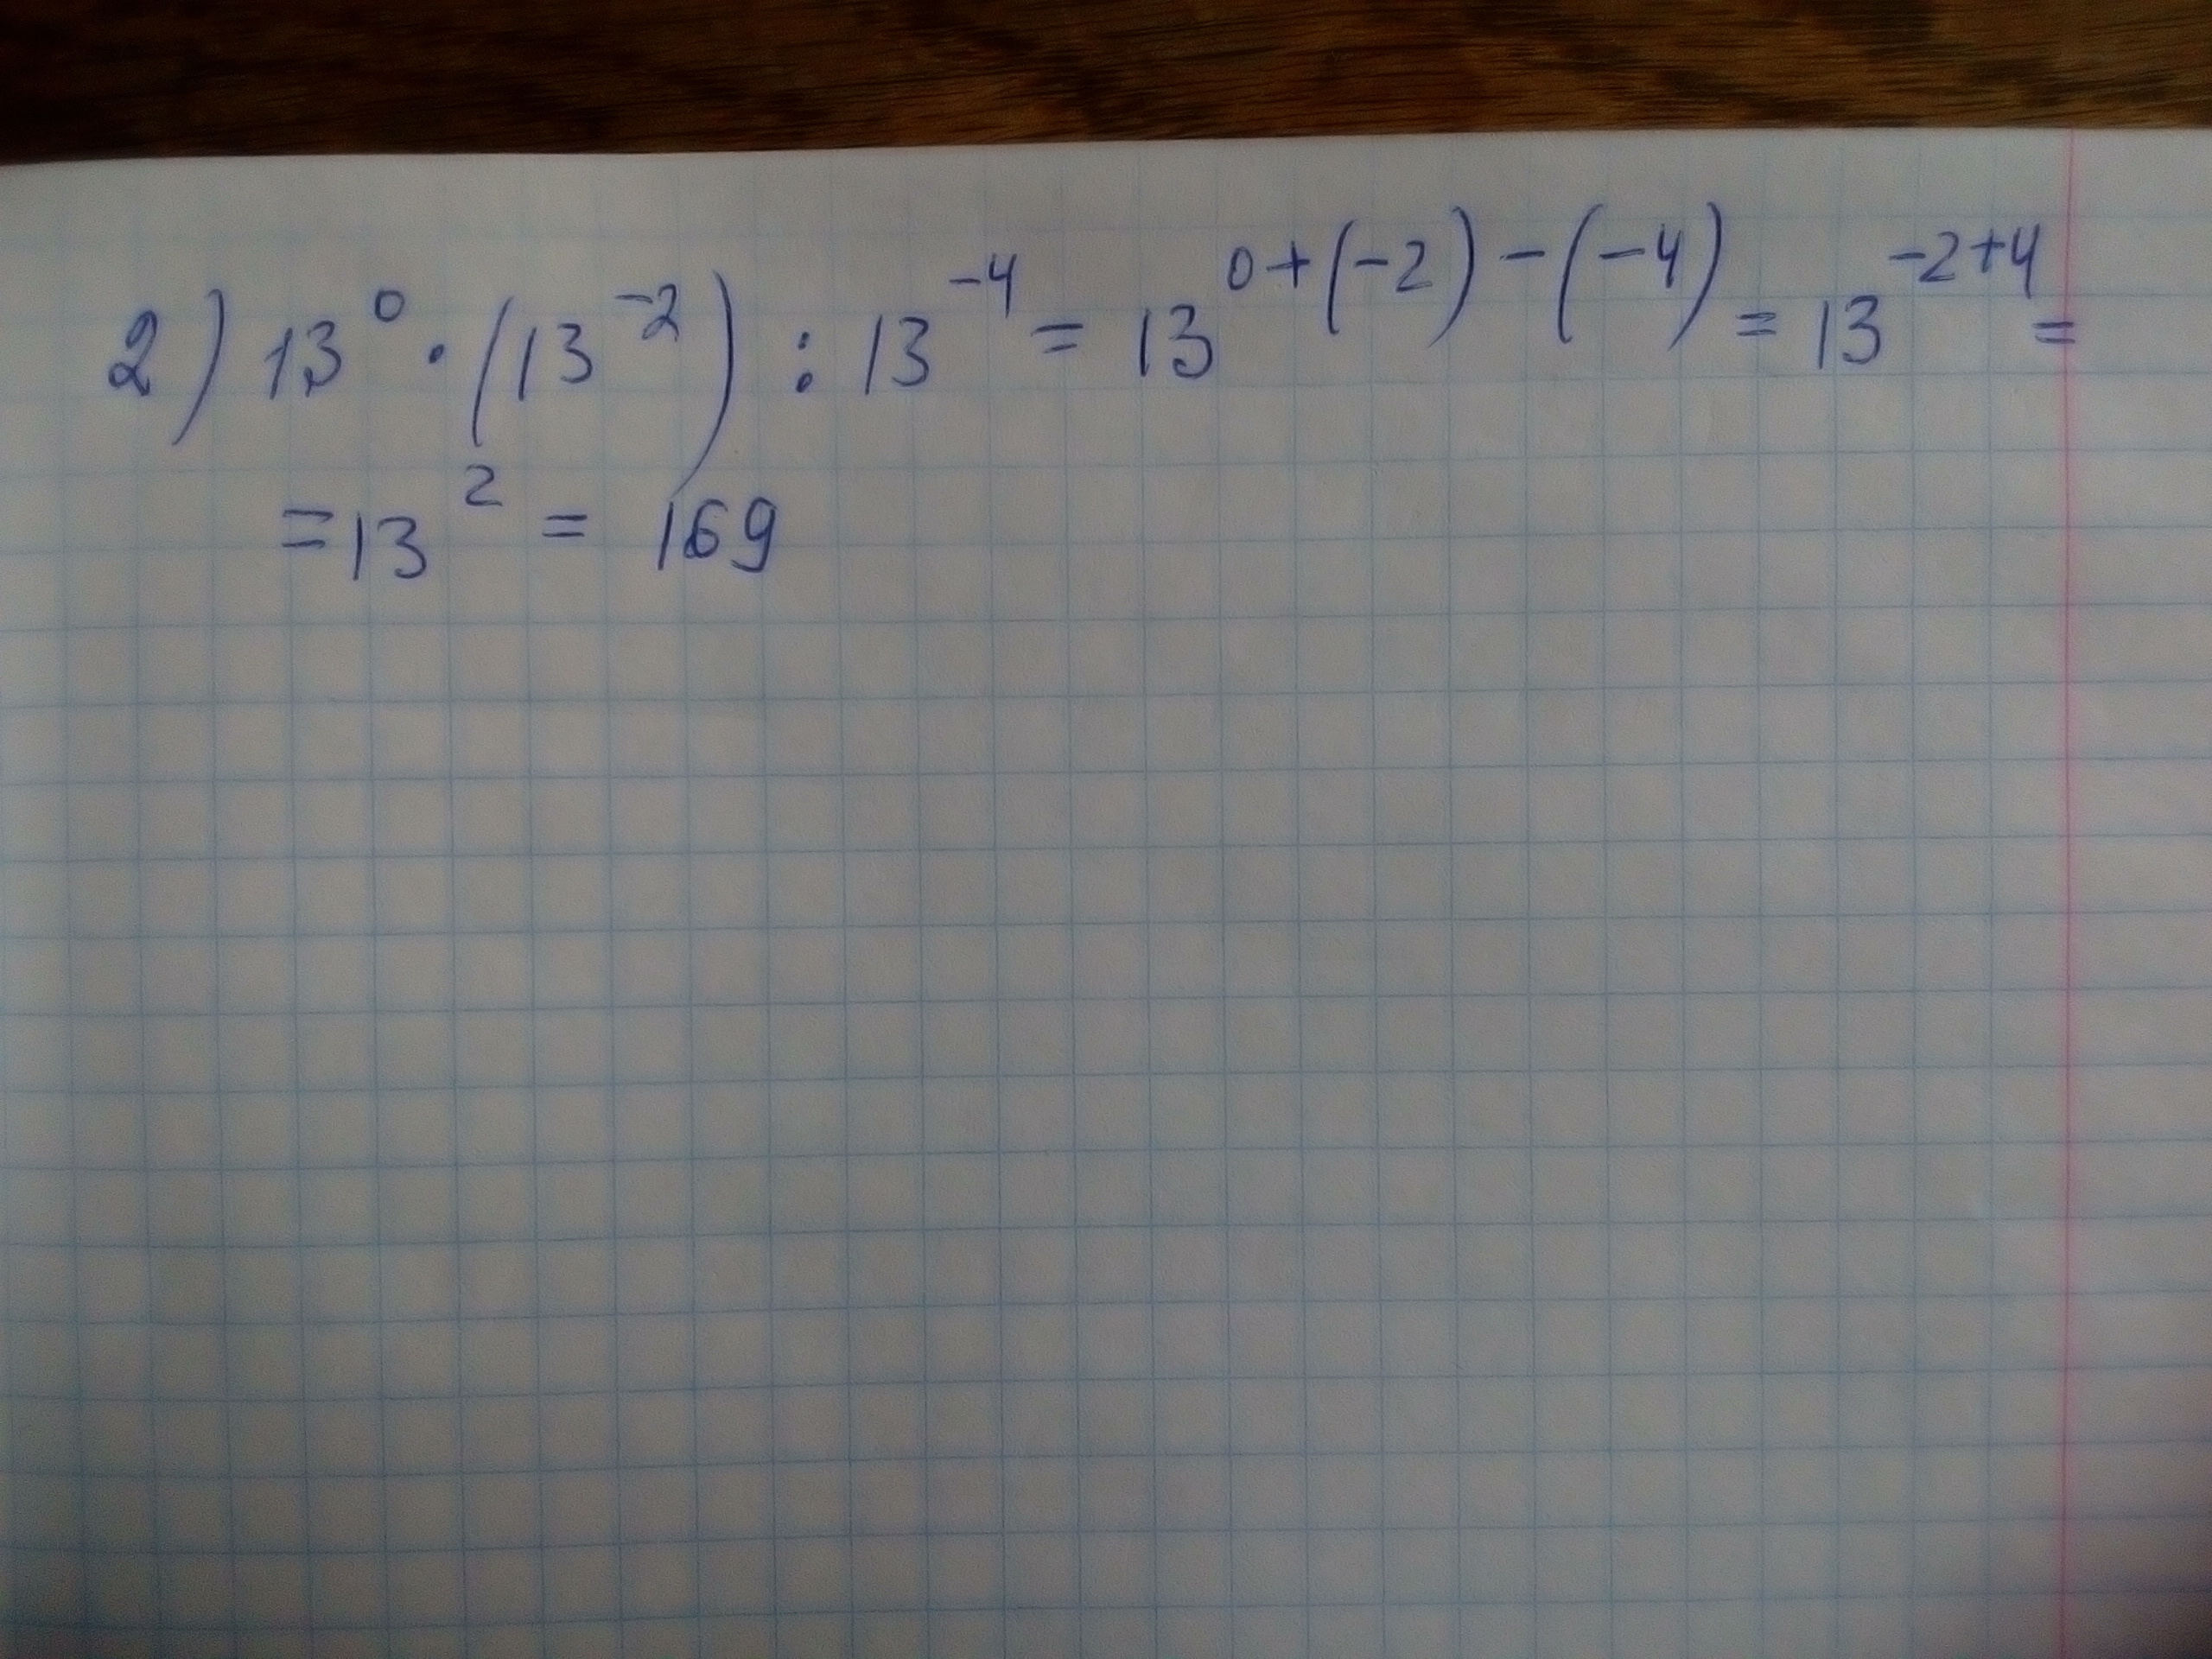 2) 13⁰ · (13⁻²) : 13⁻⁴ = 13⁰⁺⁽⁻²⁾⁻⁽⁻⁴⁾ = 13⁻²⁺⁴ =
= 13² = 169